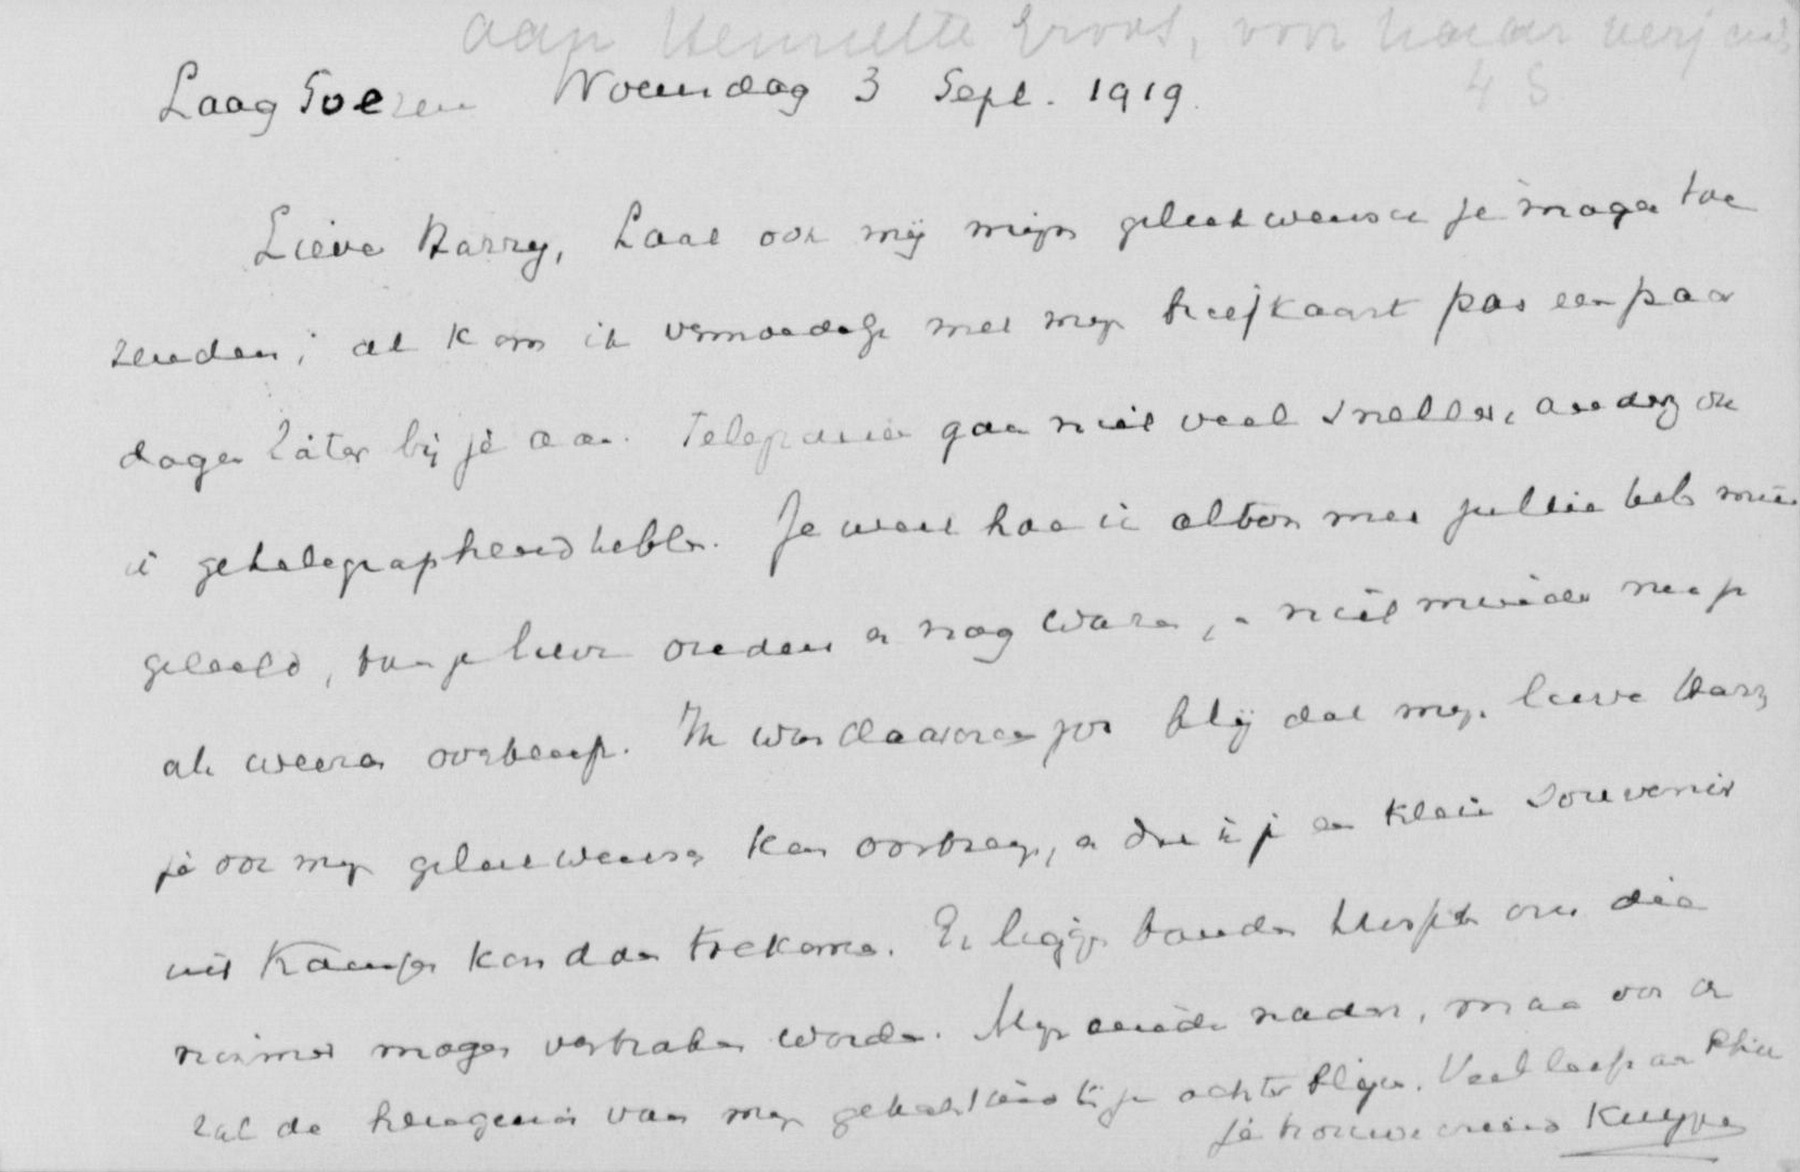 aan Henriette Kroos, voor haar verj
Laag Soeren Woensdag 3 Sept. 1919.
Lieve Harry, Laat ook mij mijn gelukwensch je mogen toe
zenden; al kom ik vermoedelijk met mijn briefkaart pas een paar
dagen later bij je aan. gaan niet veel sneller, anders zou
ik getelegrapheerd hebben. Je weet hoe ik altoos met jullie heb mee
geleefd, toen je lieve ouders er nog waren, en niet minder na je
Ik was daarom zoo blij dat mijn lieve Harry
je ook mijn gelukwensch kan overbrengen, en dat ik je een klein souvenir
uit kan doen toekomen. Er liggen banden tusschen ons die
nimmer mogen verbroken worden. Mijn einde nadert, maar ook er
zal de heugenis van mijn gehechtheid bij je achter blijven. Veel liefs aan
Je trouwe vriend Kuyper